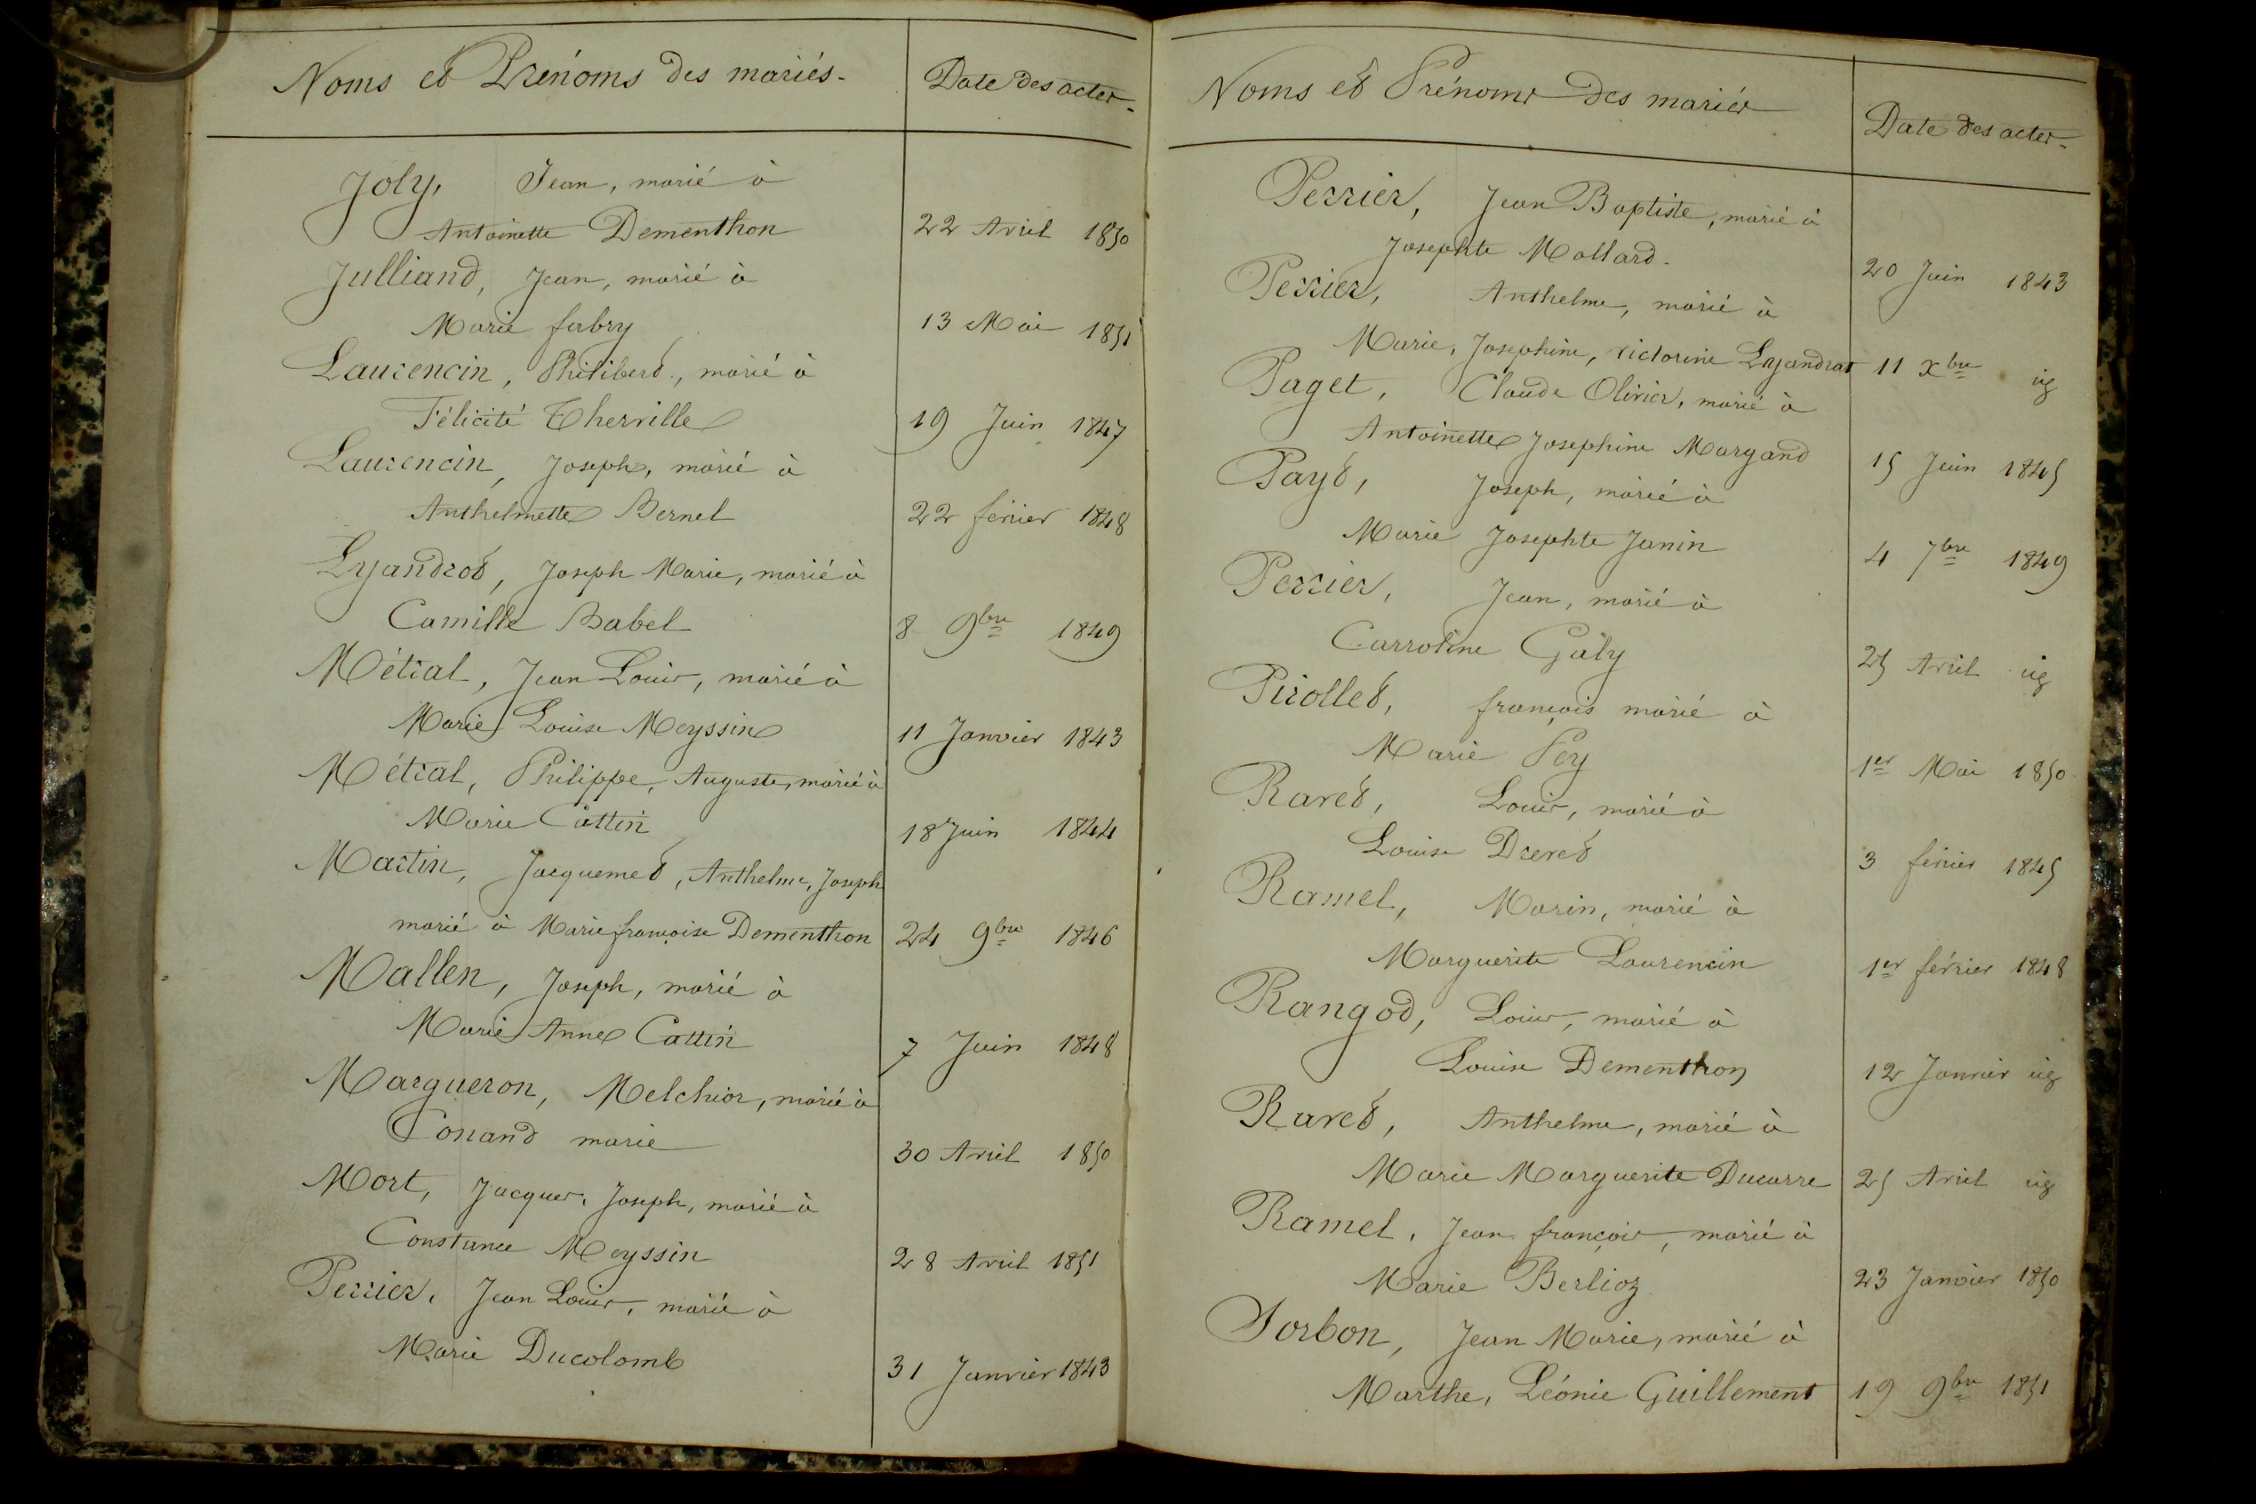 Noms et Prénoms des mariés.
Date des actes.
Joly, Jean, marié à
Antoinette Dementhon 22 Avril 1850
Julliand, Jean, marié à
Marie fabry 13 Mai 1851
Laurencin, Philibert, marié à
Félicité Therville 19 Juin 1847
Laurencin, Joseph, marié à
Anthelmette Bernel 22 février 1848
Lyandrat, Joseph Marie, marié à
Camille Babel 8 9bre 1849
Métral, Jean Louis, marié à
Marie Louise Meyssin 11 Janvier 1843
Métral, Philippe, Auguste, marié à
Marie Cattin 18 Juin 1844
Martin, Jacquemet, Anthelme, Joseph
marié à Marie françoise Dementhon 24 9bre 1846
Mallen, Joseph, marié à
Marie Anne Cattin 7 Juin 1848
Margueron, Melchior, marié à
Conand marie 30 Avril 1850
Mort, Jacques, Joseph, marié à
Constance Meyssin 28 Avril 1851
Perrier, Jean Louis, marié à
Marie Ducolomb 31 Janvier 1843
Noms et Prénoms des mariés
Date des actes.
Perrier, Jean Baptiste, marié à
Josephte Mollard. 20 Juin 1843
Perrier, Anthelme, marié à
Marie, Josephine, victorine Lyandrat 11 xbre id
Paget, Claude Olivier, marié à
Antoinette Josephine Margand 15 Juin 1845
Payt, Joseph, marié à
Marie Josephte Janin 4 7bre 1849
Perrier, Jean, marié à
Carroline Galy 25 Avril id
Pirollet, françois marié à
Marie Pey 1er Mai 1850
Ravet, Louis, marié à
Louise Drevet 3 février 1845
Ramel, Marin, marié à
Marguerite Laurencin 1er février 1848
Rangod, Louis, marié à
Louise Dementhon 12 Janvier id
Ravet, Anthelme, marié à
Marie Marguerite Ducarre 25 Avril id
Ramel, Jean françois, marié à
Marie Berlioz 23 Janvier 1850
Sorbon, Jean Marie, marié à
Marthe, Léonie Guillement 19 9bre 1851